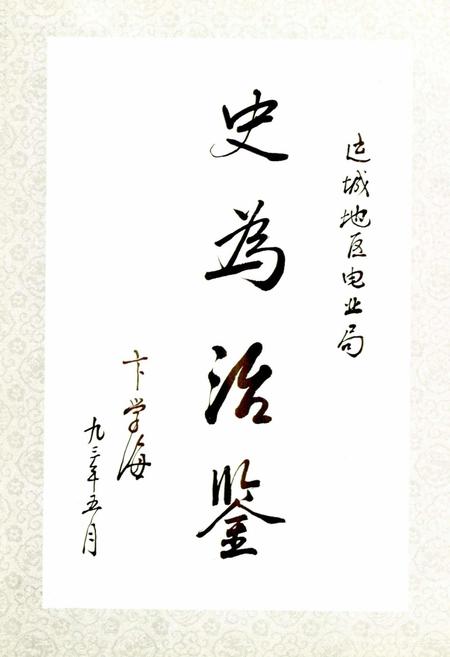 运城地区电业局
史为治鉴
卞学海
九三年五月